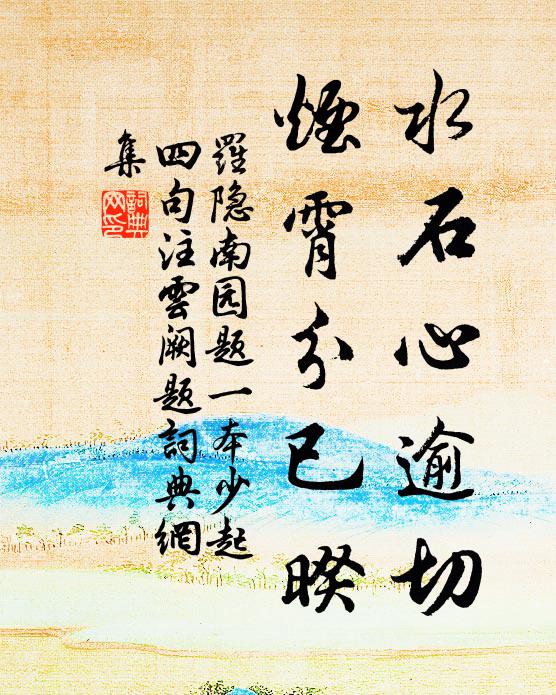 水石心逾切
煙霄分已暌
羅隐南园题一本少起
四句注雲阙题詞典網
集
詞典
网印